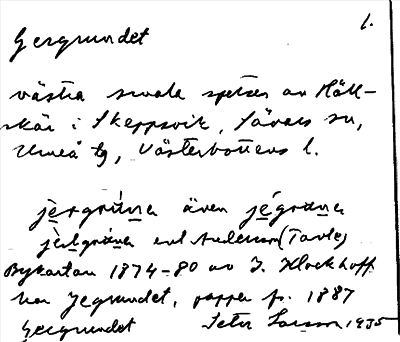 Gergrundet 1.
västra smala spetsen av Häll-
skär i Skeppsvik, Sävars sn,
Umeå tg, Västerbottens l.
jergrunna även jégrunna
jèlgrunna enl Anderson (Tavle)
Bykartan 1874-80 av J. Klockhoff
har Jegrundet, papper fr. 1887
Gergrundet Seth Larsson 1935